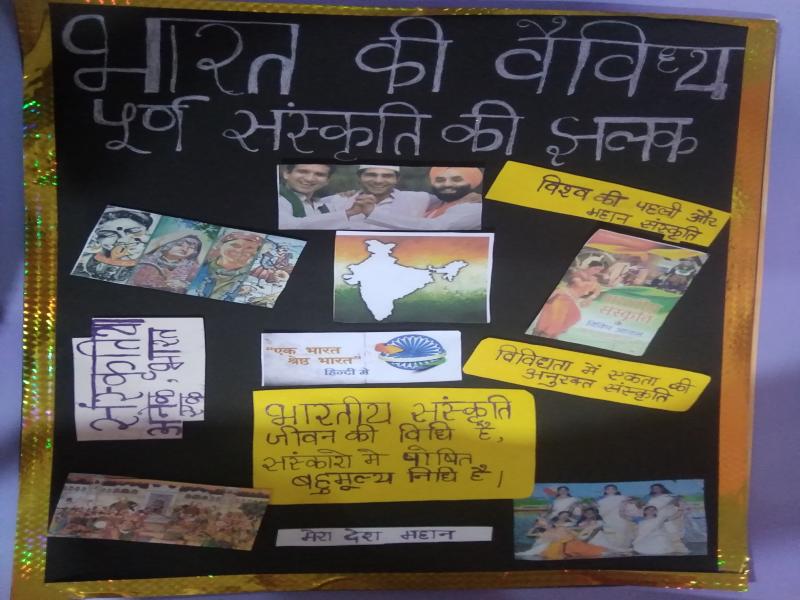 भारत की वैविध्य
पूर्ण संस्कृति की झलक
विश्व की पहली और
महान संस्कृति
संस्कृति
के
विविध आयाम
"एक भारत
श्रेष्ठ भारत"
हिन्दी मे
संस्कृतिया
अनेक, भारत
एक
विविधता में एकता की
अनुरक्त संस्कृति
भारतीय संस्कृति
जीवन की विधि है,
संस्कारो मे पोषित
बहुमूल्य निधि है।
मेरा देश महान